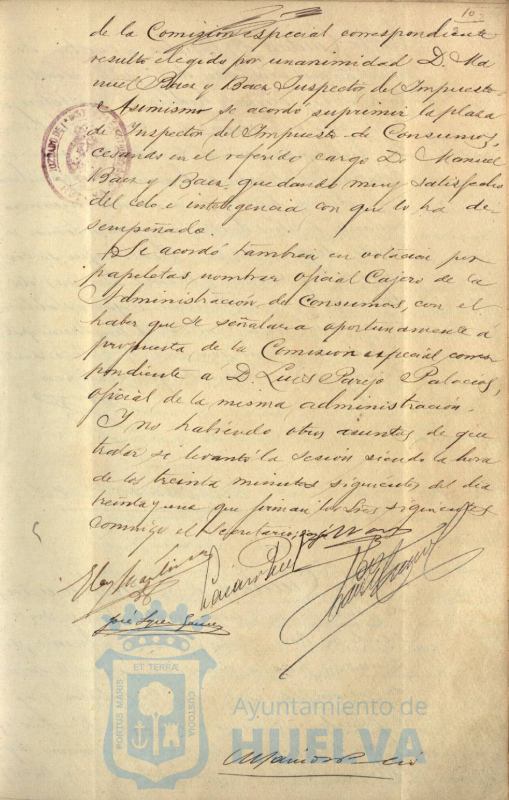 10
de la Comisión especial correspondiente
resultó elegido por unanimidad D. Ma
nuel Baez y Baez Inspector del Impuesto
Asimismo se acordó suprimir la plaza
de Inspector del Impuesto de Consumos,
cesando en el referido cargo D. Manuel
Baez y Baez, quedando muy satisfecho
del celo e inteligencia con que lo ha de-
sempeñado.
Se acordó también en votación por
papeletas, nombrar oficial Cajero de la
Administración de Consumos, con el
haber que se señalara oportunamente á
propuesta de la Comisión especial corres
pondiente á D. Luis Parejo Palacios,
oficial de la misma administración.
Y no habiendo otros asuntos de que
tratar se levantó la sesión siendo la hora
de los treinta minutos siguientes del día
treinta y uno que firman los Sres siguientes
conmigo el Secretario,
ET TERRÆ
PORTUS MARIS
CUSTODIA
Ayuntamiento de
HUELVA